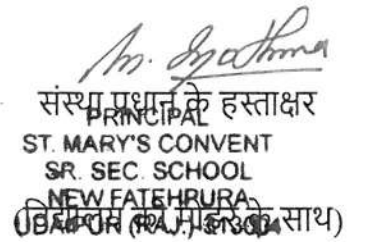 संस्था प्रधान के हस्ताक्षर
PRINCIPAL
ST. MARY'S CONVENT
SR. SEC. SCHOOL
NEW FATEHPURA
UDAIPUR (RAJ.)
के साथ)